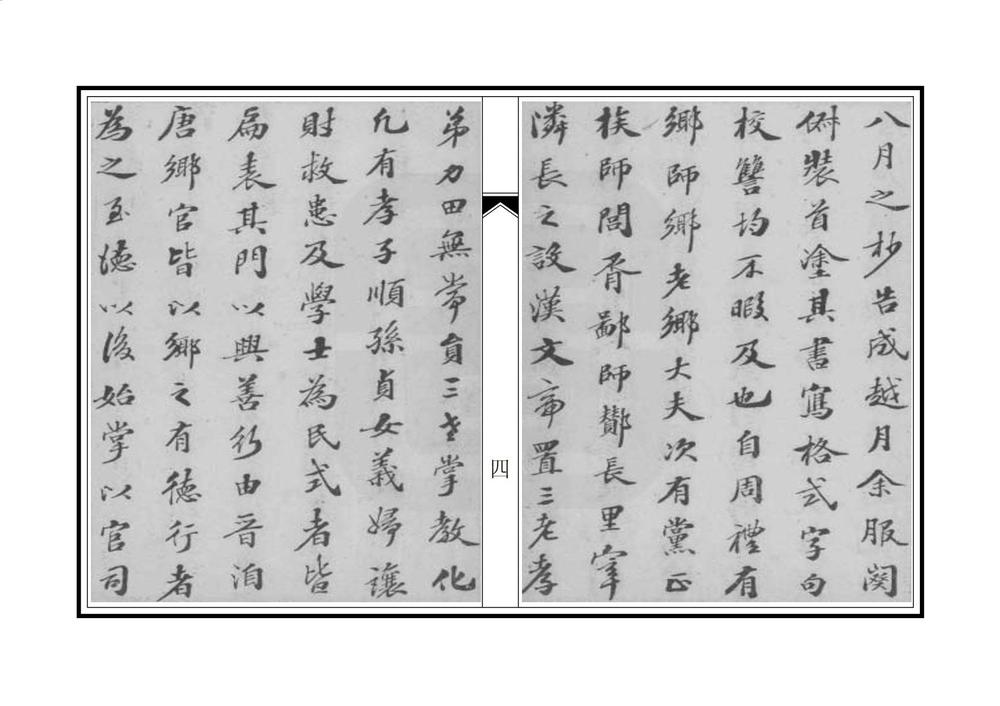 八月之杪告成越月余服闋
俶裝首塗其書寫格式字句
校讐均不暇及也自周禮有
鄉師鄉老鄉大夫次有黨正
族師閭胥鄙師酇長里宰
鄰長之設漢文帝置三老孝
四
弟力田無常員三老掌教化
凡有孝子順孫貞女義婦讓
財救患及學士為民式者皆
扁表其門以興善行由晉洎
唐鄉官皆以鄉之有德行者
為之至德以後始掌以官司